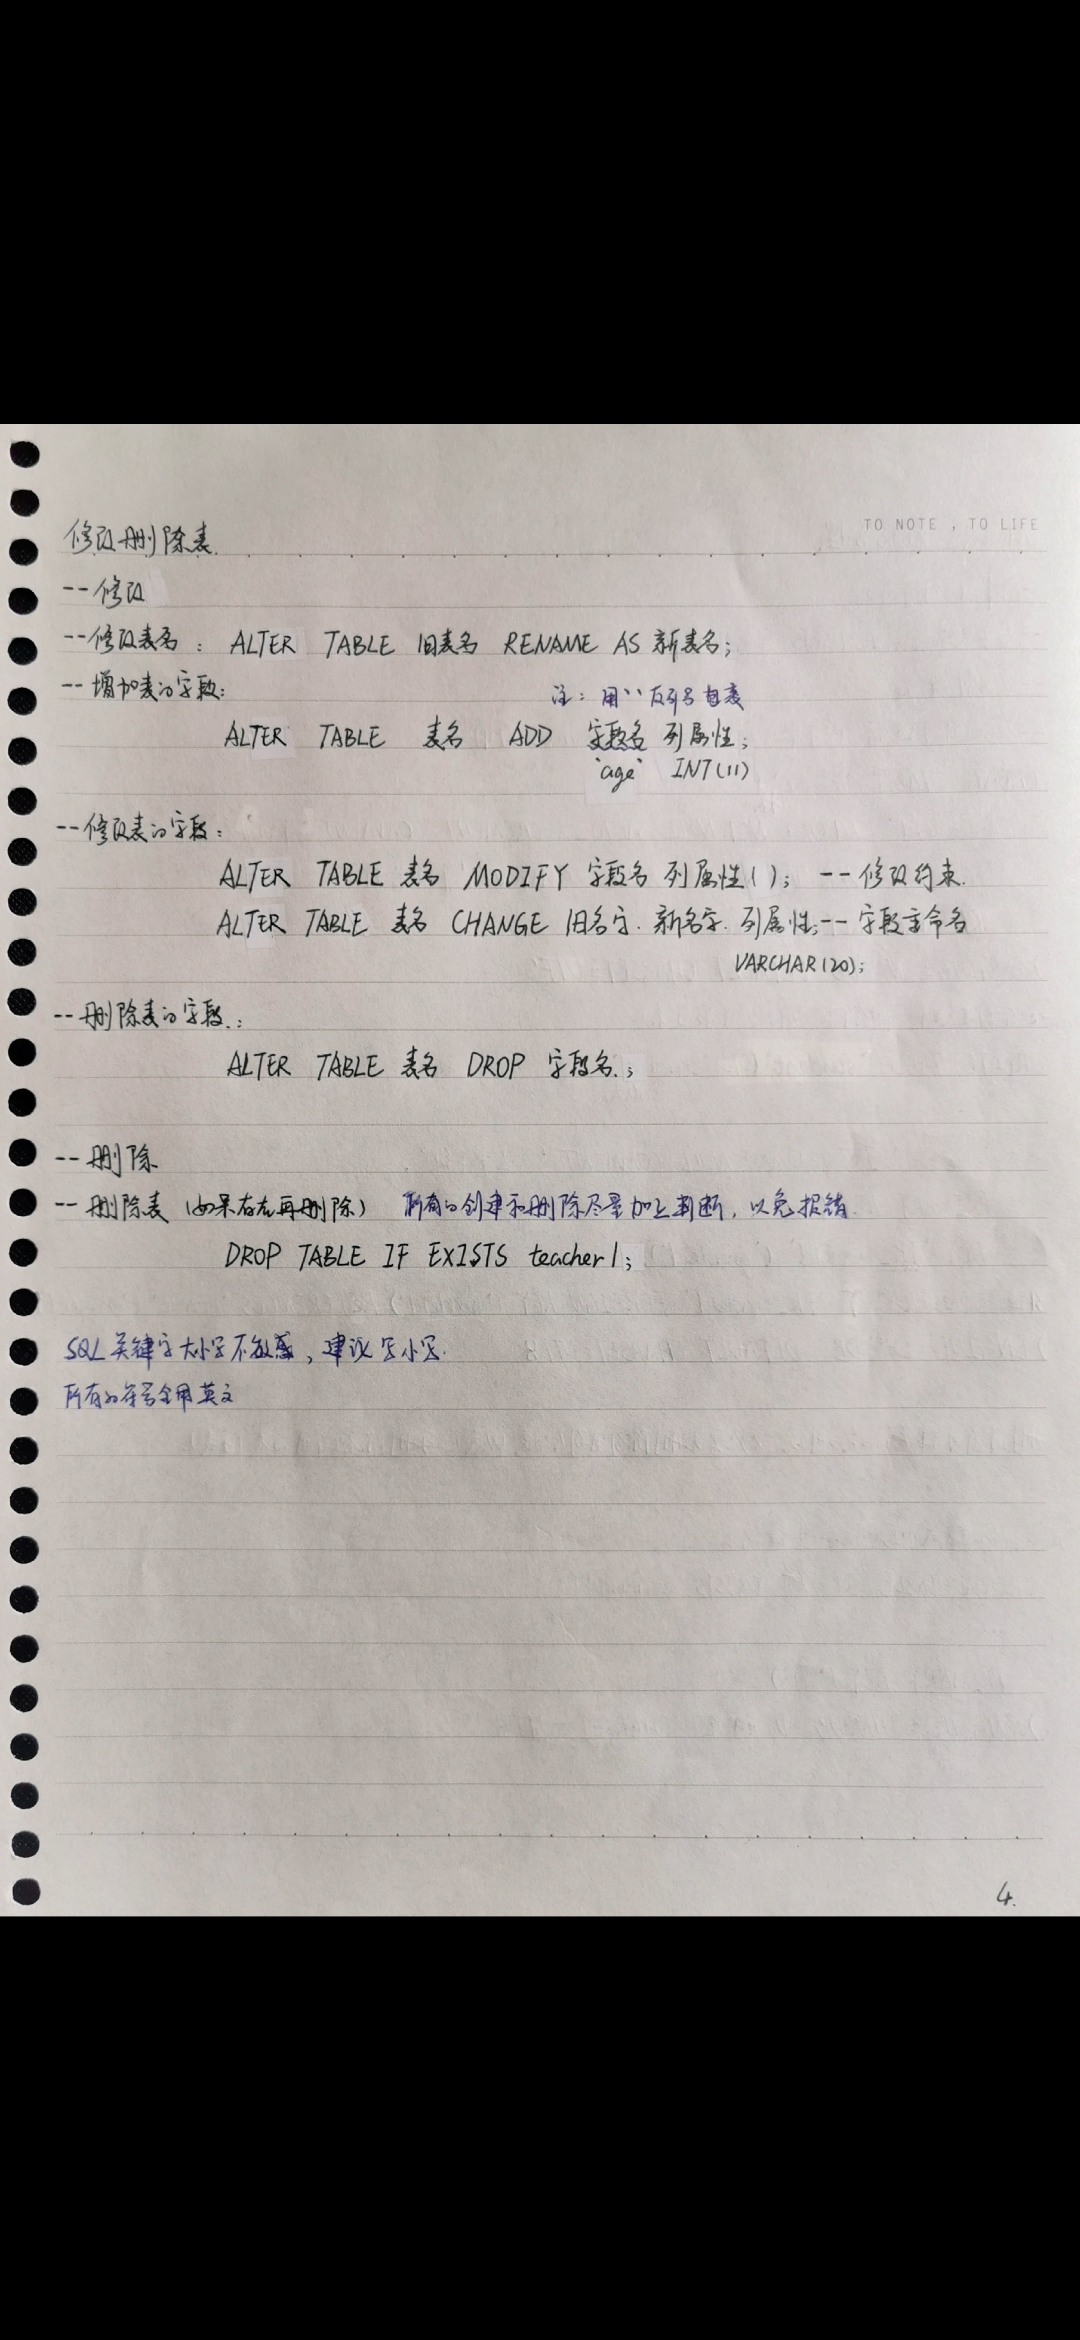 TO NOTE , TO LIFE
修改删除表
--修改
--修改表名: ALTER TABLE 旧表名 RENAME AS 新表名;
--增加表的字段:
注: 用``反引号包裹
ALTER TABLE 表名 ADD 字段名 列属性;
`age` INT(11)
--修改表的字段:
ALTER TABLE 表名 MODIFY 字段名 列属性(); --修改约束.
ALTER TABLE 表名 CHANGE 旧名字. 新名字. 列属性;--字段重命名
VARCHAR(20);
--删除表的字段.:
ALTER TABLE 表名 DROP 字段名.;
--删除
--删除表 (如果存在再删除) 所有的创建和删除尽量加上判断, 以免报错.
DROP TABLE IF EXISTS teacher1;
SQL 关键字大小写不敏感, 建议写小写.
所有的符号全用英文
4.